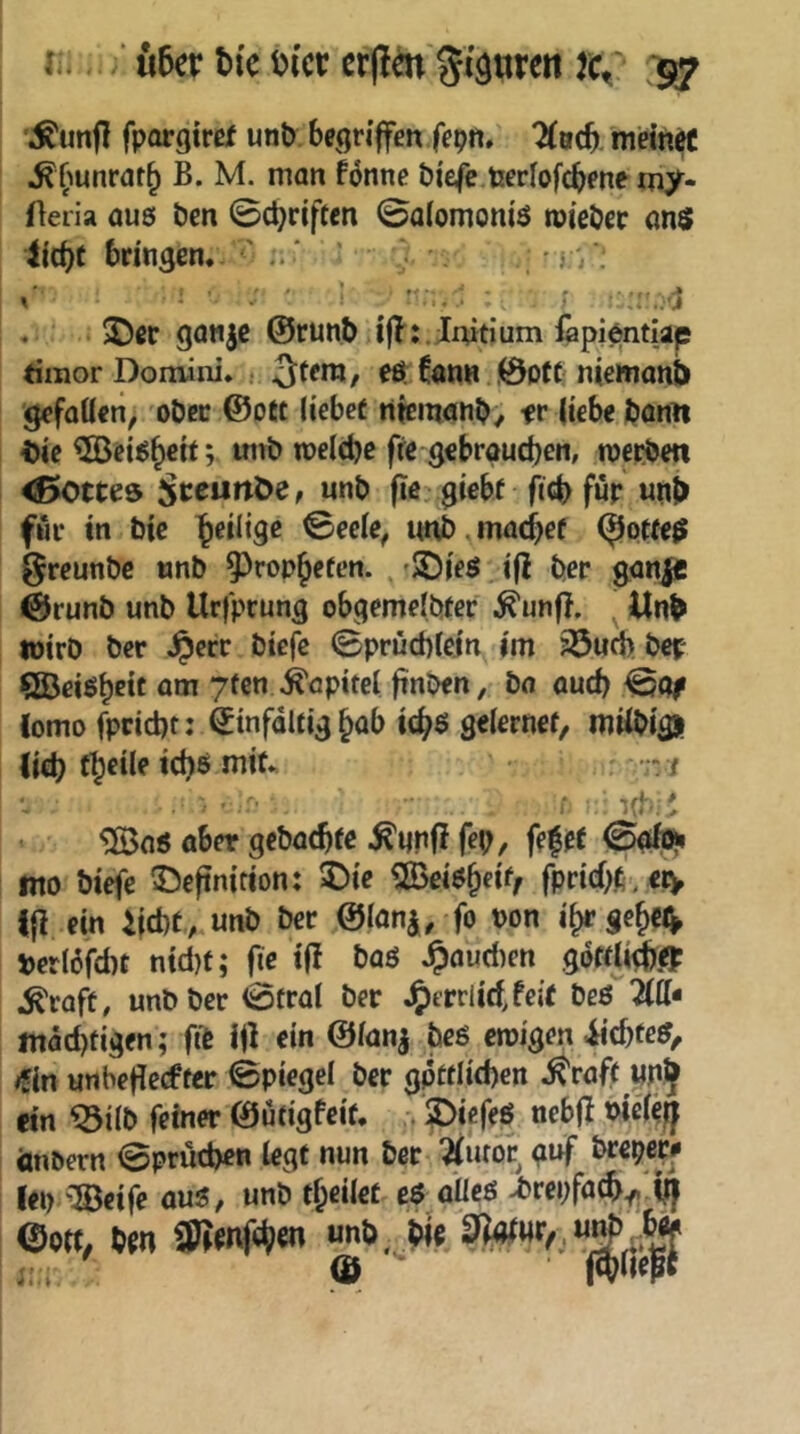 über die vier ersten Figuren ꝛc. 97
Kunst spargiret und begriffen seyn. Auch meinet
Khunrath B. M. man könne diese verloschene my-
steria aus den Schriften Salomonis wieder ans
Licht bringen.
Der ganze Grund ist: Initium sapientiae
timor Domini. Item, es kann Gott niemand
gefallen, oder Gott liebet niemand, er liebe dann
die Weisheit; und welche sie gebrauchen, werden
Gottes Freunde, und sie giebt sich für und
für in die heilige Seele, und machet Gottes
Freunde und Propheten. Dies ist der ganze
Grund und Ursprung obgemeldter Kunst. Und
wird der Herr diese Sprüchlein im Buch der
Weisheit am 7ten Kapitel finden, da auch Sa-
lomo spricht: Einfältig hab ichs gelernet, mildig-
lich theile ichs mit.
Was aber gedachte Kunst sey, setzet Salo-
mo diese Definition: Die Weisheit, spricht er,
ist ein Licht, und der Glanz, so von ihr gehet,
verlöscht nicht; sie ist das Hauchen göttlicher
Kraft, und der Stral der Herrlichkeit des All-
mächtigen; sie ist ein Glanz des ewigen Lichtes,
ein unbefleckter Spiegel der göttlichen Kraft und
ein Bild seiner Gütigkeit. Dieses nebst vielen
andern Sprüchen legt nun der Autor auf dreyer-
ley Weise aus, und theilet es alles dreyfach, in
Gott, den Menschen und die Natur, und be-
G schließt